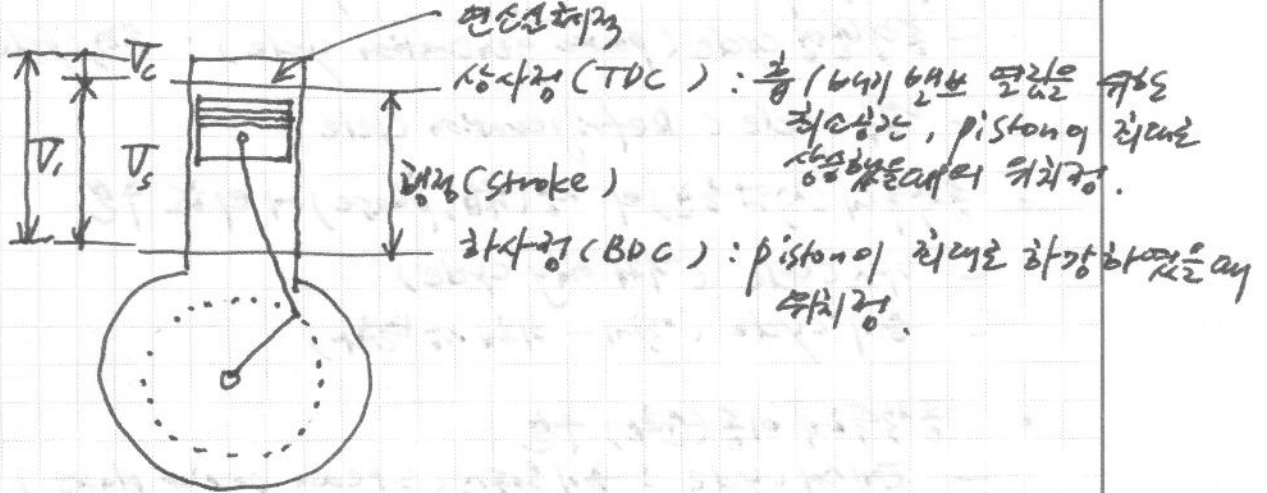 연소실체적
V_c
상사점(TDC) : 흡/배기 밸브 열림을 위한
최소공간, piston이 최대로
상승했을때의 위치점.
V_1
V_s
행정(stroke)
하사점(BDC) : piston이 최대로 하강하였을 때
위치점.